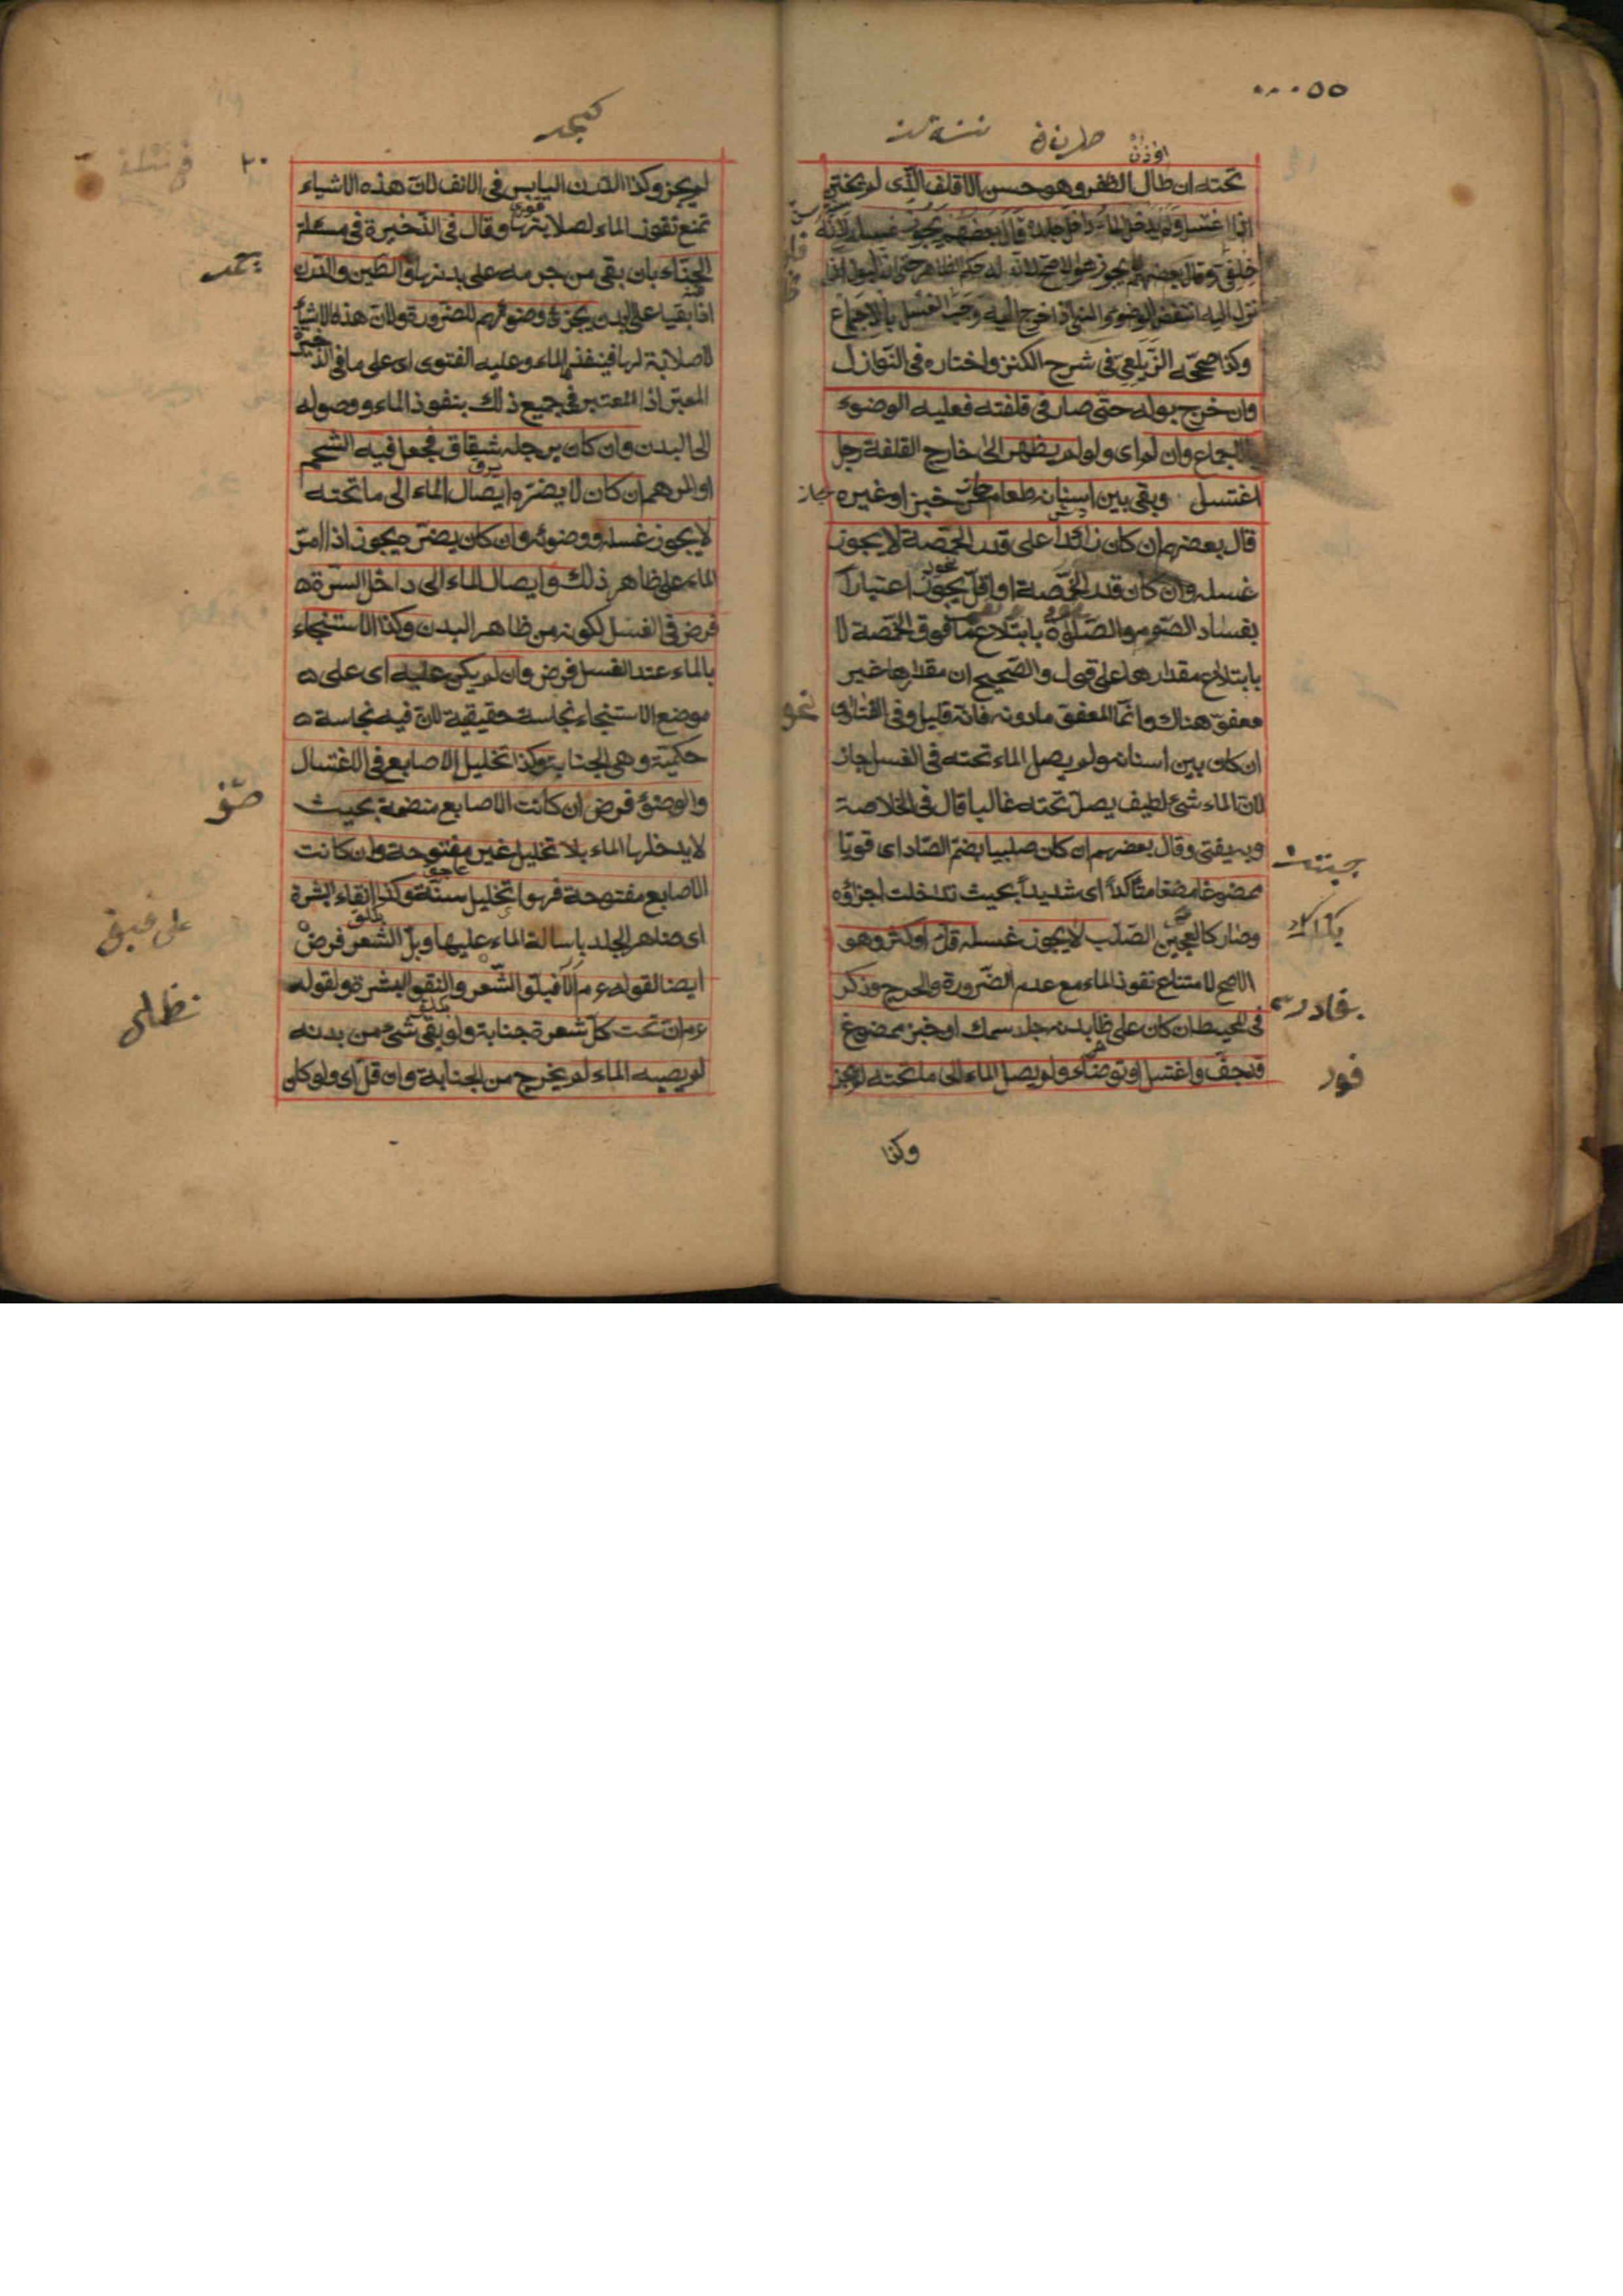 ٠٠٠٥٥
تحته ان طال الظفر وهو حسن الاقلف الذى لم يختتن
اذا اغتسل ولم يدخل الماء داخل جلده قال بعضهم يجوز غسله لانه
خلقى وقال بعضهم لا يجوز له حكم الظاهر حتى ان البول اذا
نزل اليه انتقض الوضوء والمنى اذا خرج اليه وجب الغسل بالاجماع
وكذا صححه الزيلعى فى شرح الكنز واختاره فى النوازل
وان خرج بوله حتى صار فى قلفته فعليه الوضوء
بالاجماع وان لم اى ولو لم يظهر الى خارج القلفة رجل
اغتسل وبقى بين اسنانه طعام خبز او غيره
قال بعضهم ان كان زائدا على قدر الحمّصة لا يجوز
غسله وان كان قدر الحمّصة او اقلّ يجوز اعتبارا
بفساد الصّوم والصّلوة بابتلاع ما فوق الحمّصة لا
بابتلاع مقدارها على قول والصّحيح ان مقدارها غير
معفوّ هناك وانّما المعفوّ مادونه فانّه قليل وفى الفتاوى
ان كان بين اسنانه ولم يصل الماء تحته فى الغسل جاز
لانّ الماء شئ لطيف يصل تحته غالبا قال فى الخلاصة
وبه يفتى وقال بعضهم ان كان صلبيا بضمّ الصّاد اى قويّا
ممضوغا مضغا متأكّداً اى شديداً بحيث تداخلت اجزاؤه
وصار كالعجين الصّلب لا يجوز غسله قلّ او كثر وهو
الاصح لامتناع نفوذ الماء مع عدم الضّرورة والحرج وذكر
فى المحيط ان كان على ظا بدنه جلد سمك او خبز ممضوغ
قد جفّ واغتسل او توضّاء ولم يصل الماء الى ما تحته لم يجز
وكذا
٢٠
لم يجز وكذا الدّرن اليابس فى الانف لانّ هذه الاشياء
تمنع نفوذ الماء لصلابتها وقال فى الذّخيرة فى مسئلة
الحنّاء بان بقى من جرمه على بدنها والطّين والدّرن
اذا بقيا على البدن يجزئ وضوئهم للضّرورة ولانّ هذه الاشياء
لا صلابة لها فينفذ الماء وعليه الفتوى اى على ما فى الذخيرة
المعتبر اذ المعتبر فى جميع ذلك بنفوذ الماء ووصوله
الى البدن وان كان برجله شقاق فجعل فيه الشّحم
او المرهم ان كان لا يضرّه ايصال الماء الى ما تحته
لا يجوز غسله ووضوئه وان كان يضرّه يجوز اذا امرّ
الماء على ظاهر ذلك وايصال الماء الى داخل السّرّة
فرض فى الغسل لكونه من ظاهر البدن وكذا الاستنجاء
بالماء عند الغسل فرض وان لم يكن عليه اى على
موضع الاستنجاء نجاسة حقيقية لانّ فيه نجاسة
حكميّة وهى الجنابة وكذا تخليل الاصابع فى الاغتسال
والوضوء فرض ان كانت الاصابع منضمة بحيث
لا يدخلها الماء بلا تخليل غير مفتوحة وان كانت
الاصابع مفتوحة فهو اى تخليل سنّة وكذا انقاء البشرة
اى ظاهر الجلد باسالة الماء عليها وبلّ الشّعر فرض
ايضا لقوله ءم الا فبلّوا الشّعر وانقوا البشرة ولقوله
ءم انّ تحت كلّ شعرة جنابة ولو بقى شئ من بدنه
لم يصبه الماء لم يخرج من الجنابة وان قلّ اى ولو كان